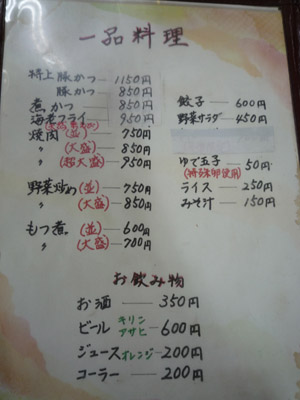 一品料理
特上豚かつ — 1150円
豚かつ — 850円
煮かつ — 850円
海老フライ — 950円
焼肉(並) — 750円
〃 (大盛) — 850円
〃 (超大盛) — 950円
野菜炒め(並) — 750円
〃 (大盛) — 850円
もつ煮(並) — 600円
〃 (大盛) — 700円
餃子 — 600円
野菜サラダ — 450円
ゆで玉子 — 50円
ライス — 250円
みそ汁 — 150円
お飲み物
お酒 — 350円
ビール キリン アサヒ — 600円
ジュース オレンジ — 200円
コーラー — 200円